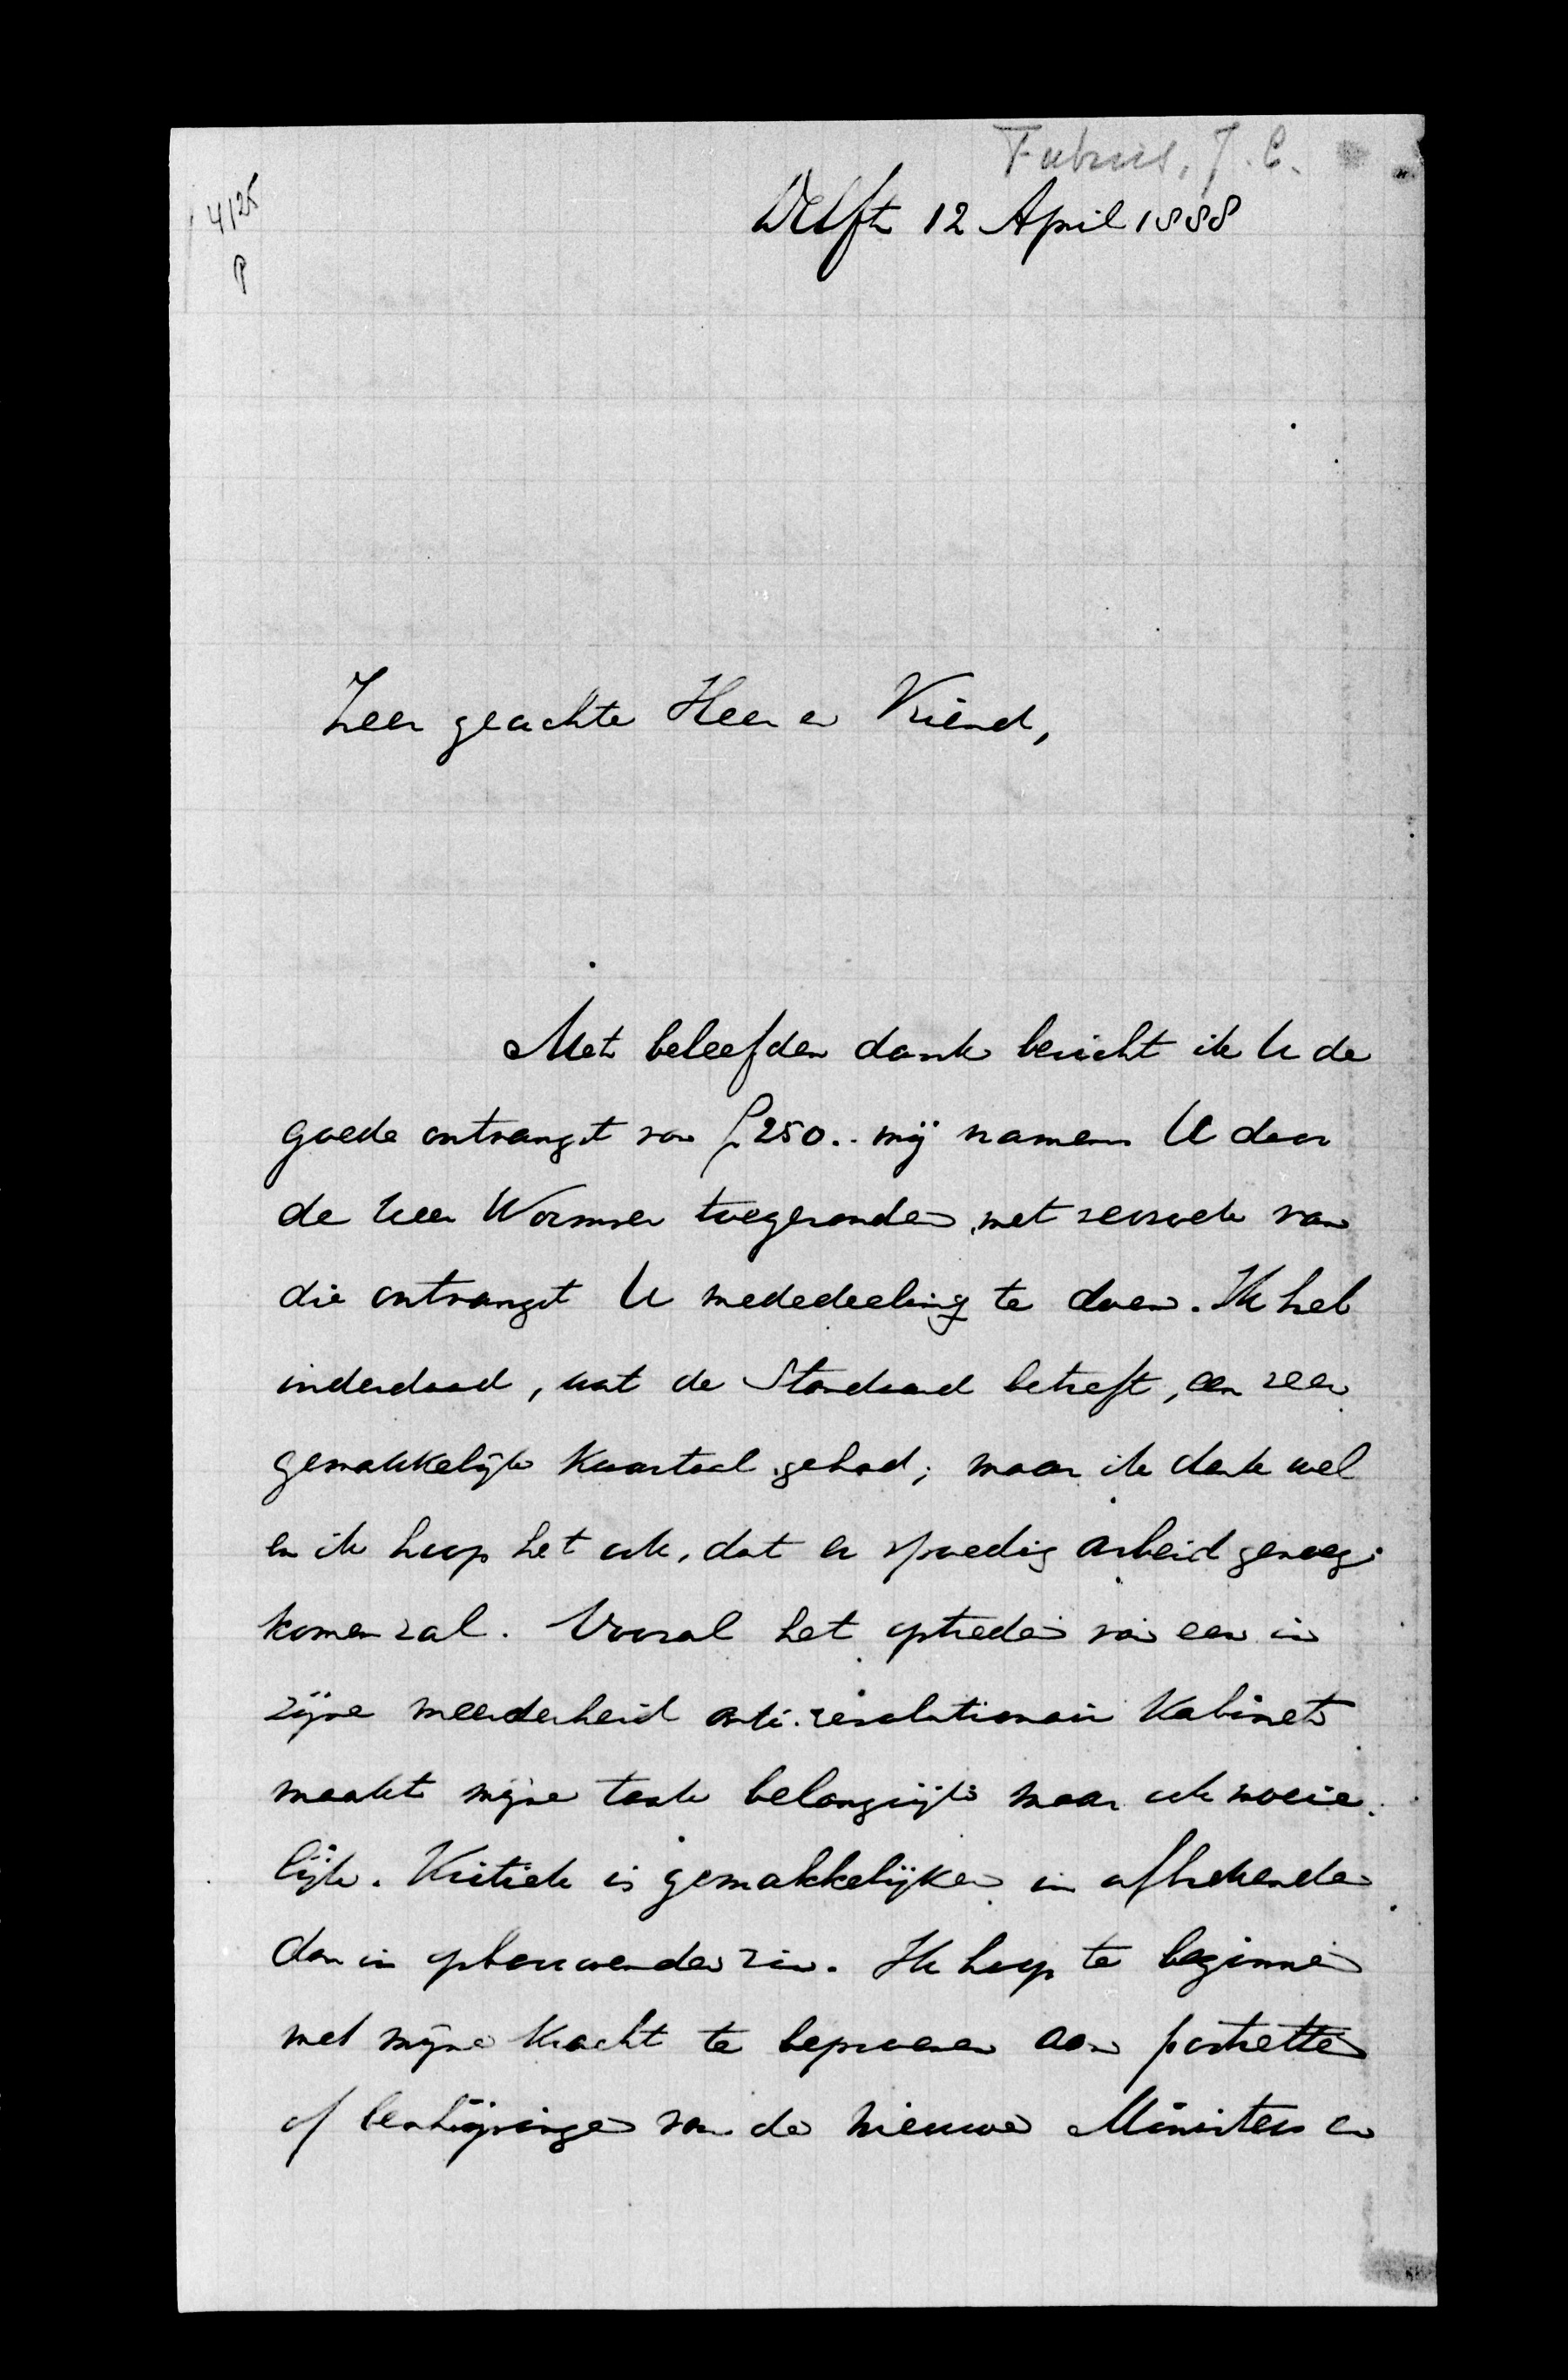 Fabius, J. C.
4125
P
Delft 12 April 1888
Zeer geachte Heer en Vriend,
Met beleefden dank bericht ik U de
goede ontvangst van f 250.- mij namens U door
de heer Wormser toegezonden, met verzoek van
die ontvangst U mededeeling te doen. Ik heb
inderdaad, wat de Standaard betreft, een zeer
gemakkelijk kwartaal gehad; maar ik denk wel
en ik hoop het ook, dat er spoedig arbeid genoeg
komen zal. Vooral het optreden van een in
zijne meerderheid anti-revolutionair Kabinet
maakt mijne taak belangrijk maar ook moeie-
lijk. Kritiek is gemakkelijker in afbrekenden
dan in opbouwenden zin. Ik hoop te beginnen
met mijne kracht te beproeven aan portretten
of van de nieuwe Ministers en